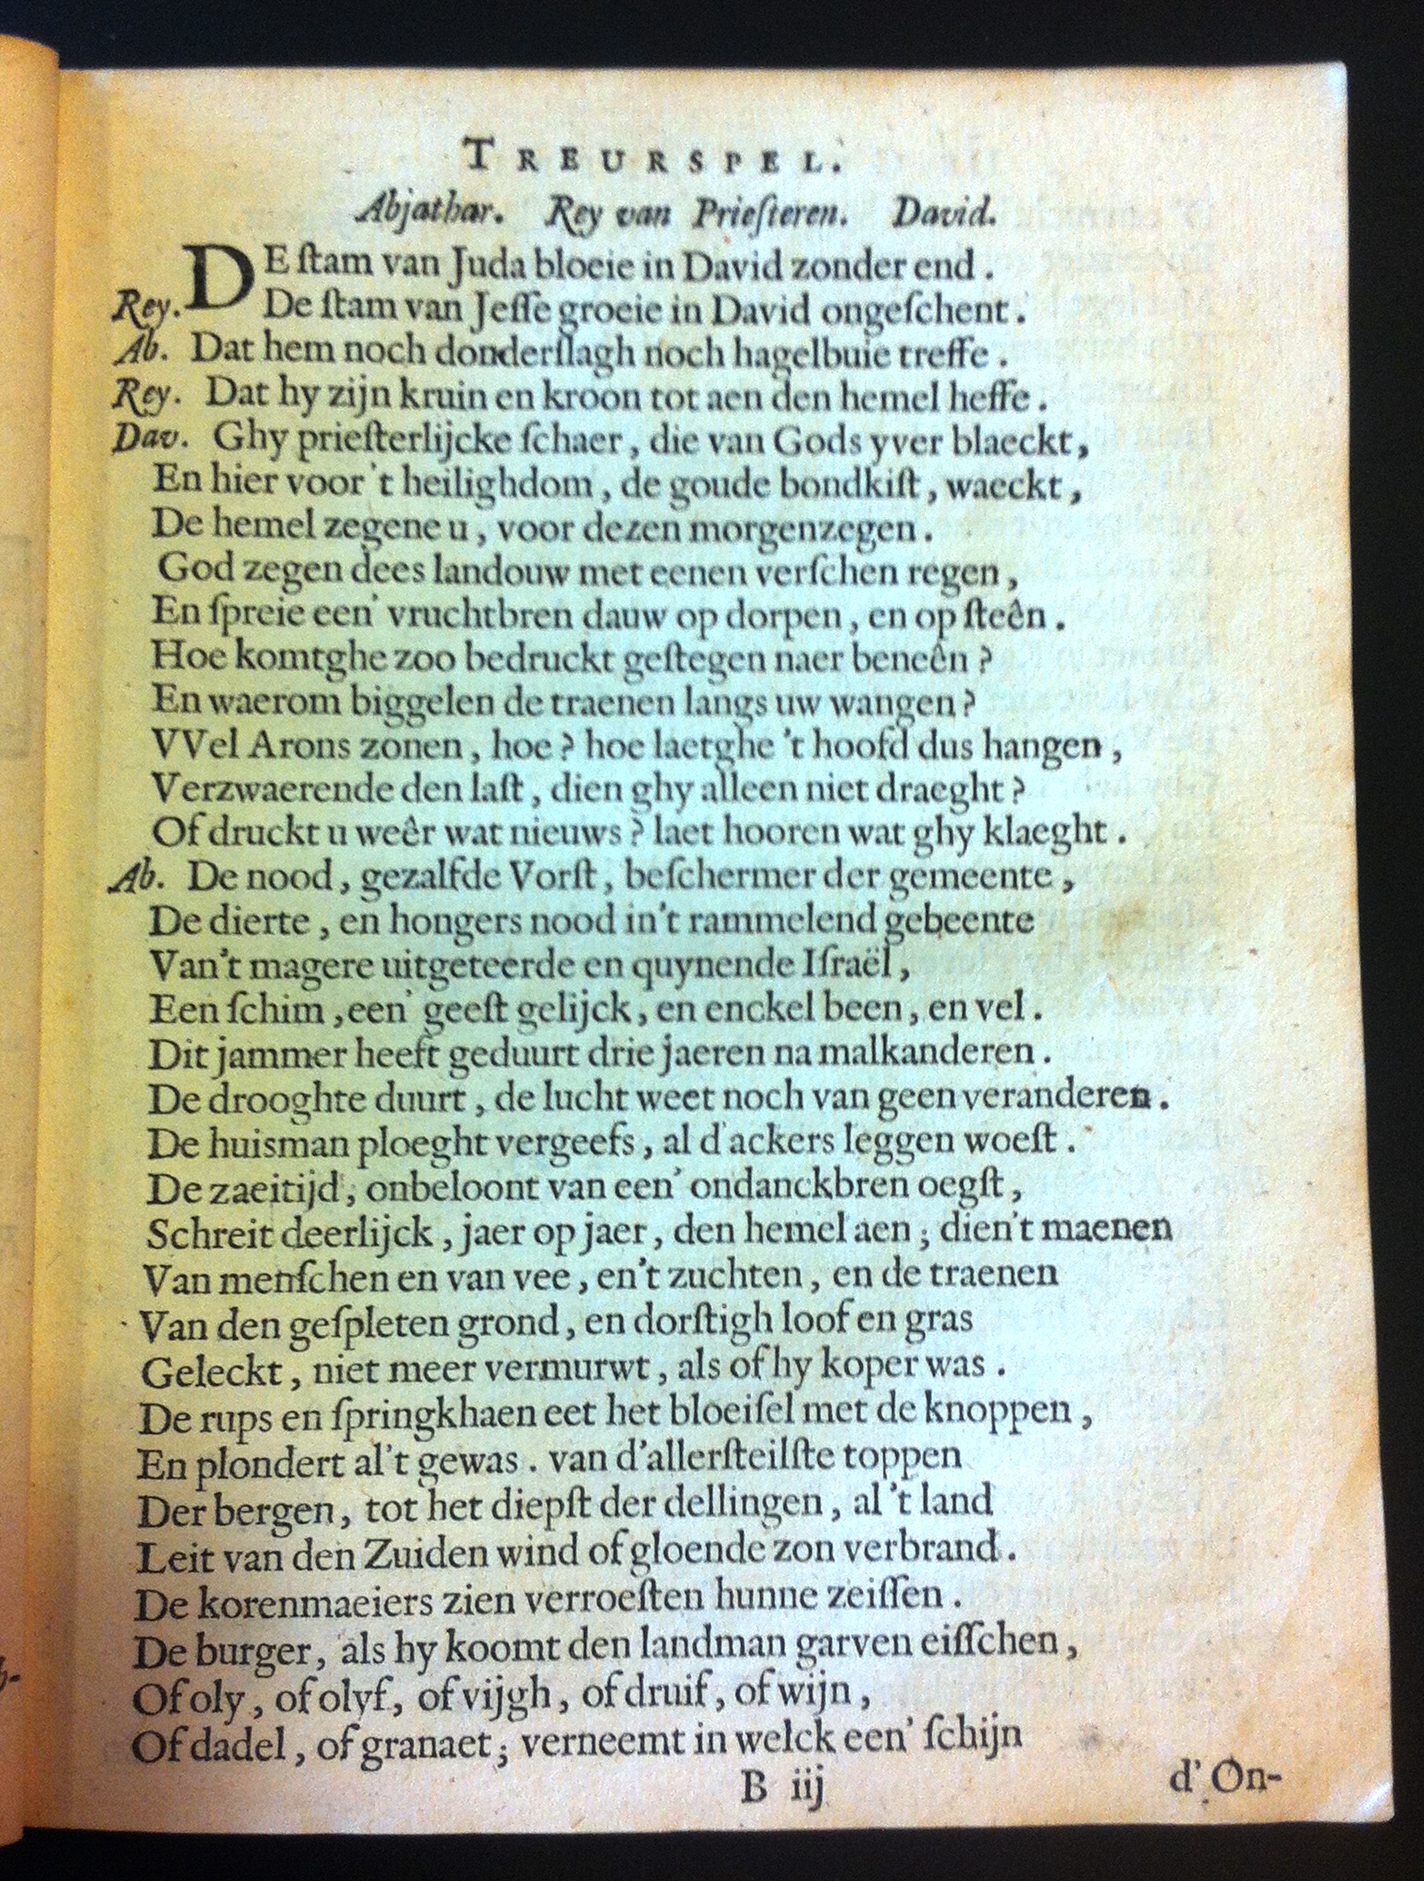 TREURSPEL.
Abjathar. Rey van Prieſteren. David.
DE ſtam van Juda bloeie in David zonder end.
Rey. De ſtam van Jeſſe groeie in David ongeſchent.
Ab. Dat hem noch donderſlagh noch hagelbuie treffe.
Rey. Dat hy zijn kruin en kroon tot aen den hemel heffe.
Dav. Ghy prieſterlijcke ſchaer, die van Gods yver blaeckt,
En hier voor 't heilighdom, de goude bondkiſt, waeckt,
De hemel zegene u, voor dezen morgenzegen.
God zegen dees landouw met eenen verſchen regen,
En ſpreie een' vruchtbren dauw op dorpen, en op ſteên.
Hoe komtghe zoo bedruckt geſtegen naer beneên?
En waerom biggelen de traenen langs uw wangen?
VVel Arons zonen, hoe? hoe laetghe 't hoofd dus hangen,
Verzwaerende den laſt, dien ghy alleen niet draeght?
Of druckt u weêr wat nieuws? laet hooren wat ghy klaeght.
Ab. De nood, gezalfde Vorſt, beſchermer der gemeente,
De dierte, en hongers nood in't rammelend gebeente
Van't magere uitgeteerde en quynende Iſraël,
Een ſchim, een' geeſt gelijck, en enckel been, en vel.
Dit jammer heeft geduurt drie jaeren na malkanderen.
De drooghte duurt, de lucht weet noch van geen veranderen.
De huisman ploeght vergeefs, al d'ackers leggen woeſt.
De zaeitijd, onbeloont van een' ondanckbren oegſt,
Schreit deerlijck, jaer op jaer, den hemel aen; dien't maenen
Van menſchen en van vee, en't zuchten, en de traenen
Van den geſpleten grond, en dorſtigh loof en gras
Geleckt, niet meer vermurwt, als of hy koper was.
De rups en ſpringkhaen eet het bloeiſel met de knoppen,
En plondert al't gewas. van d'allerſteilſte toppen
Der bergen, tot het diepſt der dellingen, al 't land
Leit van den Zuiden wind of gloende zon verbrand.
De korenmaeiers zien verroeſten hunne zeiſſen.
De burger, als hy koomt den landman garven eiſſchen,
Of oly, of olyf, of vijgh, of druif, of wijn,
Of dadel, of granaet; verneemt in welck een' ſchijn
B iij
d'On-